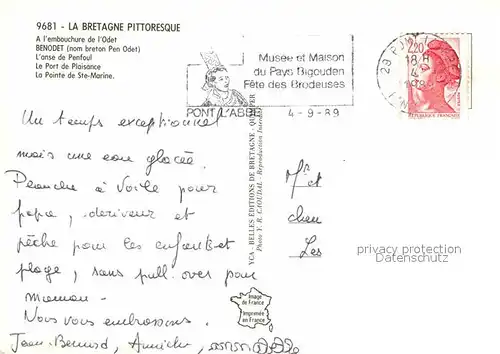 9681 - LA BRETAGNE PITTORESQUE
A l'embouchure de l'Odet
BENODET (nom breton Pen Odet)
L'anse de Penfoul
Le Port de Plaisance
La Pointe de Ste-Marine.
PONT L'ABBE
Musée et Maison
du Pays Bigouden
Fête des Brodeuses
4-9-89
29 PONT
18 H
4-9
1989
2,20
REPUBLIQUE FRANÇAISE
Un temps exceptionnel
mais une eau glacée.
Planche à Voile pour
papa, dériveur et
pêche pour les enfants et
plage, sans pull-over pour
maman.
Nous vous embrassons.
Jean-Bernard, Annick,
YCA - BELLES ÉDITIONS DE BRETAGNE, QUIMPER
Photo Y. R. CAOUDAL - Reproduction Interdite
Mr et
chen
Les
Image
de France
Imprimée
en France
copyright protection
Datenschutz